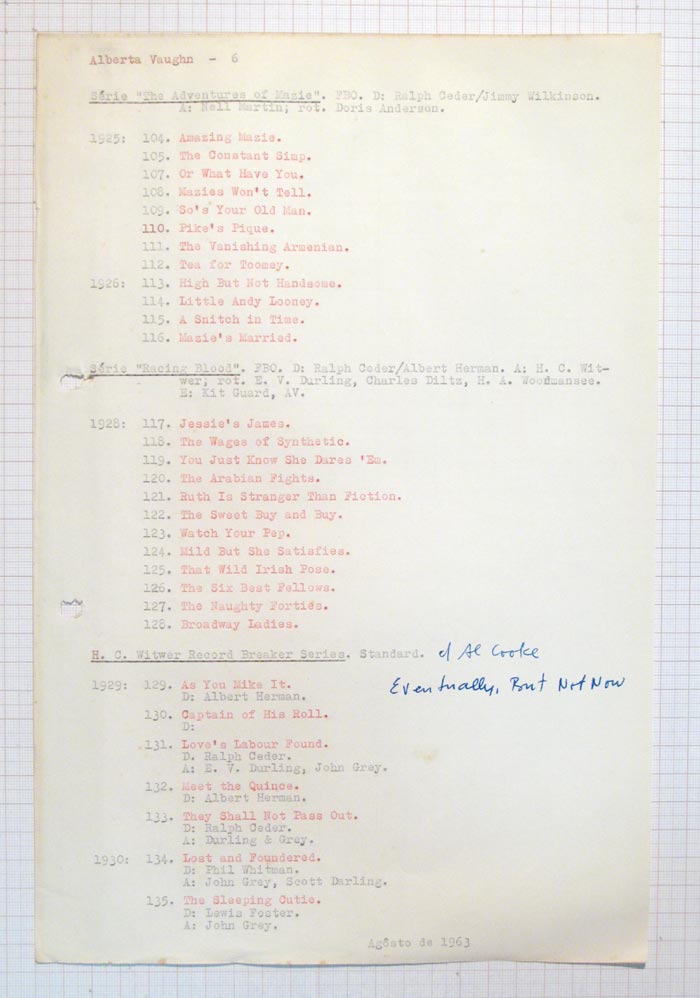 Alberta Vaughn - 6
Série "The Adventures of Mazie". FBO. D: Ralph Ceder/Jimmy Wilkinson.
A: Nell Martin; rot. Doris Anderson.
1925: 104. Amazing Mazie.
105. The Constant Simp.
107. Or What Have You.
108. Mazies Won't Tell.
109. So's Your Old Man.
110. Pike's Pique.
111. The Vanishing Armenian.
112. Tea for Toomey.
1926: 113. High But Not Handsome.
114. Little Andy Looney.
115. A Snitch in Time.
116. Mazie's Married.
Série "Racing Blood". FBO. D: Ralph Ceder/Albert Herman. A: H. C. Wit-
wer; rot. E. V. Durling, Charles Diltz, H. A. Woodmansee.
E: Kit Guard, AV.
1928: 117. Jessie's James.
118. The Wages of Synthetic.
119. You Just Know She Dares 'Em.
120. The Arabian Fights.
121. Ruth Is Stranger Than Fiction.
122. The Sweet Buy and Buy.
123. Watch Your Pep.
124. Mild But She Satisfies.
125. That Wild Irish Pose.
126. The Six Best Fellows.
127. The Naughty Forties.
128. Broadway Ladies.
H. C. Witwer Record Breaker Series. Standard. c/ Al Cooke
1929: 129. As You Mike It. Eventually, But Not Now
D: Albert Herman.
130. Captain of His Roll.
D:
131. Love's Labour Found.
D. Ralph Ceder.
A: E. V. Durling, John Grey.
132. Meet the Quince.
D: Albert Herman.
133. They Shall Not Pass Out.
D: Ralph Ceder.
A: Durling & Grey.
1930: 134. Lost and Foundered.
D: Phil Whitman.
A: John Grey, Scott Darling.
135. The Sleeping Cutie.
D: Lewis Foster.
A: John Grey.
Agôsto de 1963